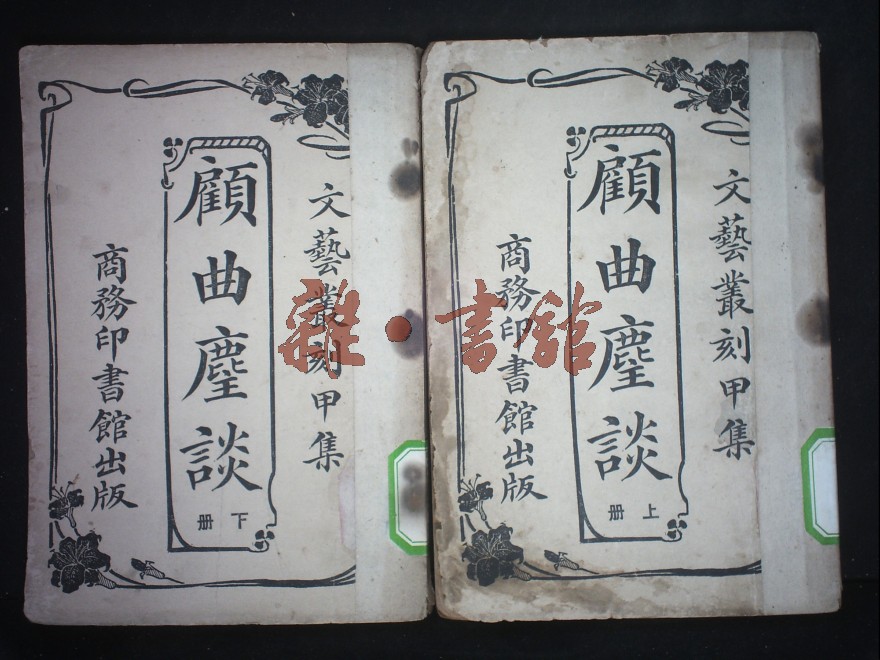 文藝叢刻甲集
顧曲麈談
上册
商務印書館出版
文藝叢刻甲集
顧曲麈談
下册
商務印書館出版
雜·書館